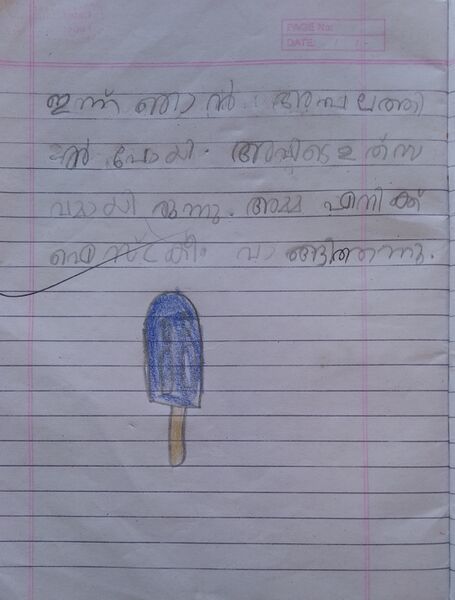 PAGE No:
DATE: / /
ഇന്ന് ഞാൻ അമ്പലത്തി
ൽ പോയി. അവിടെ ഉത്സ
വമായിരുന്നു. അമ്മ എനിക്ക്
ഐസ്ക്രീം വാങ്ങിത്തന്നു.